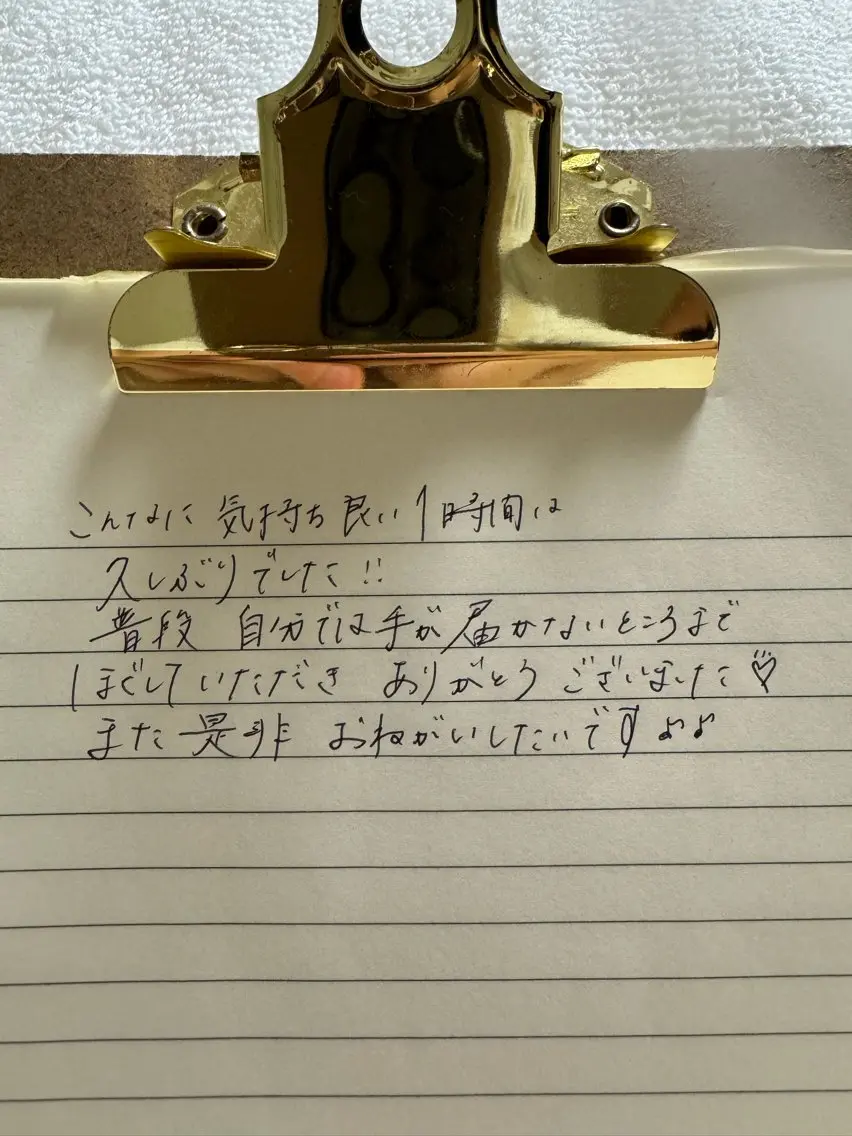 こんなに 気持ち良い1時間は
久しぶりでした!!
普段 自分では手が届かないところまで
ほぐしていただき ありがとうございました♡
また是非 おねがいしたいです♪♪